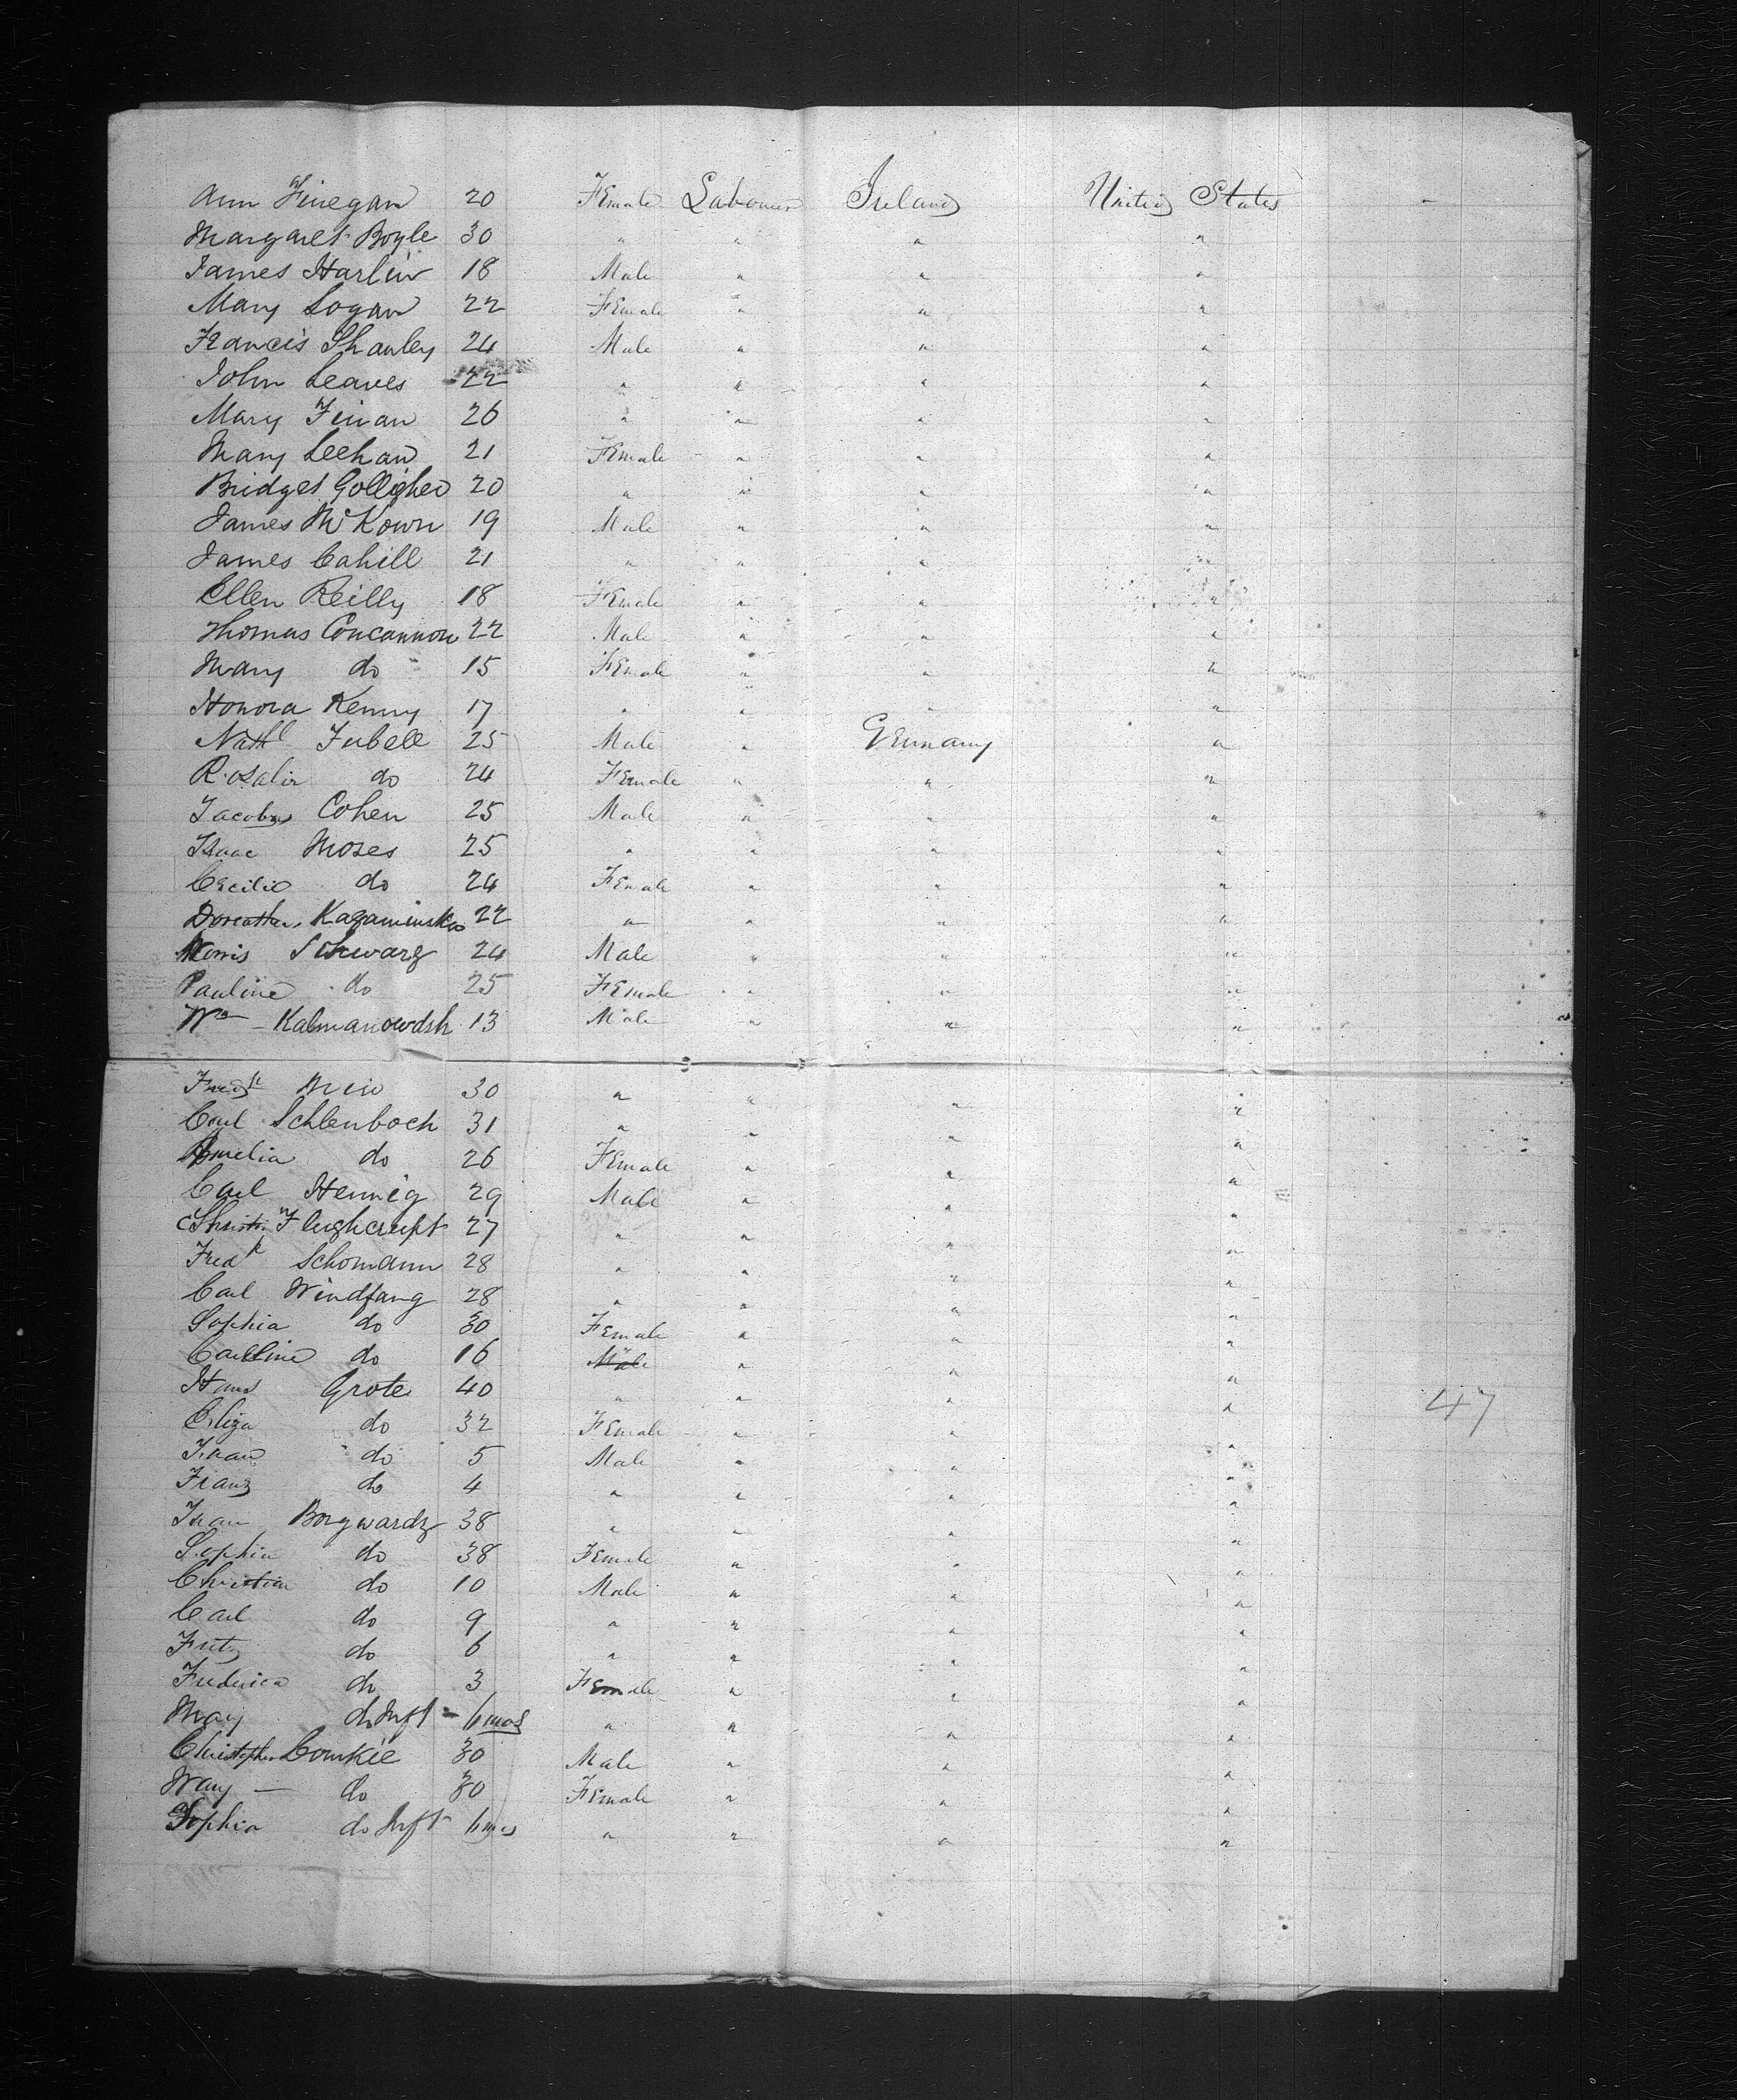 Ann Finegan 20 Female Labourer Ireland United States -
Margaret Boyle 30 " " " "
James Harlin 18 Male " " "
Mary Logan 22 Female " " "
Francis Shanley 24 Male " " "
John Leaves 22 " " " "
Mary Finan 26 " " " "
Mary Leehan 21 Female " " "
Bridget Golligher 20 " " " "
James McKown 19 Male " " "
James Cahill 21 " " " "
Ellen Reilly 18 Female " " "
Thomas Concannon 22 Male " " "
Mary do 15 Female " " "
Honora Kenny 17 " " " "
Nathl Jubell 25 Male " Germany "
Rosalie do 24 Female " " "
Jacobus Cohen 25 Male " " "
Isaac Moses 25 " " " "
Cecilie do 24 Female " " "
Doreathea Kazaminska 22 " " " "
Morris Schwarz 24 Male " " "
Pauline do 25 Female " " "
Wm - Kalmanowdsh 13 Male " " "
Fredk 30 " " " "
Carl Schlenboch 31 " " " "
Amelia do 26 Female " " "
Carl Hennig 29 Male " " "
27 " " " "
Fredk Schomann 28 " " " "
Carl Windfang 28 " " " "
Sophia do 30 Female " " "
Carlline do 16 Male " " "
Hans Grote 40 " " " " 47
Eliza do 32 Female " " "
Johan do 5 Male " " "
Franz do 4 " " " "
Johan Borgwardz 38 " " " "
Sophia do 38 Female " " "
Christian do 10 Male " " "
Carl do 9 " " " "
Fritz do 6 " " " "
Frederica do 3 Female " " "
Mary do Inft - 6 mos " " " "
Christopher Comkie 30 Male " " "
Mary - do 30 Female " " "
Sophia do Inft 6 mos " " " "